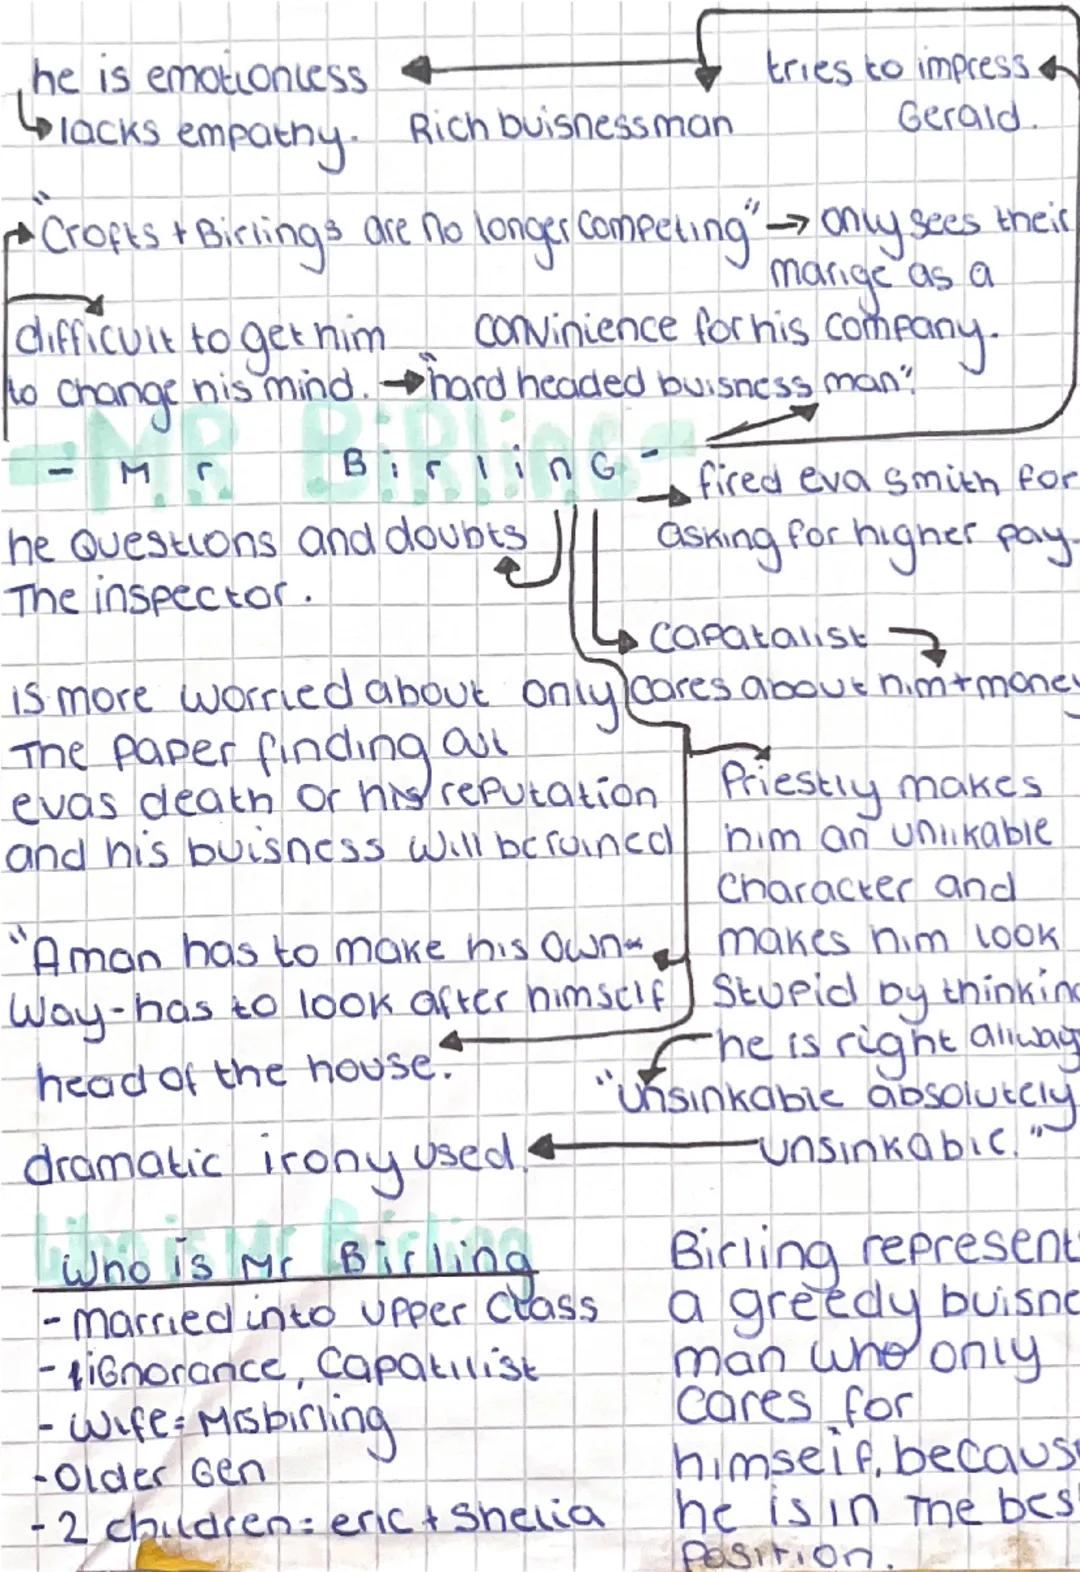 he is emotionless
lacks empathy.
Rich buisnessman
tries to impress
Gerald.
"Crofts + Birlings are no longer competing" → only sees their
marige as a
convinience for his company.
difficult to get him
to change his mind. → "hard headed buisness man".
- Mr Birling -
fired eva smith for
asking for higher pay.
he questions and doubts
The inspector.
capatalist
only cares about him + money
is more worried about
The paper finding out
evas death or his reputation
and his buisness will be ruined
Priestly makes
him an unlikable
character and
makes him look
stupid by thinking
he is right allways
"unsinkable absolutely
unsinkable."
dramatic irony used.
"A man has to make his own
way - has to look after himself
head of the house.
Who is Mr Birling
- married into upper class
- ignorance, capatilist
- wife = Mrs birling
- older Gen
- 2 children = eric + Shelia
Birling represent
a greedy buisne
man who only
cares for
himself, becaus
he is in the bes
position.